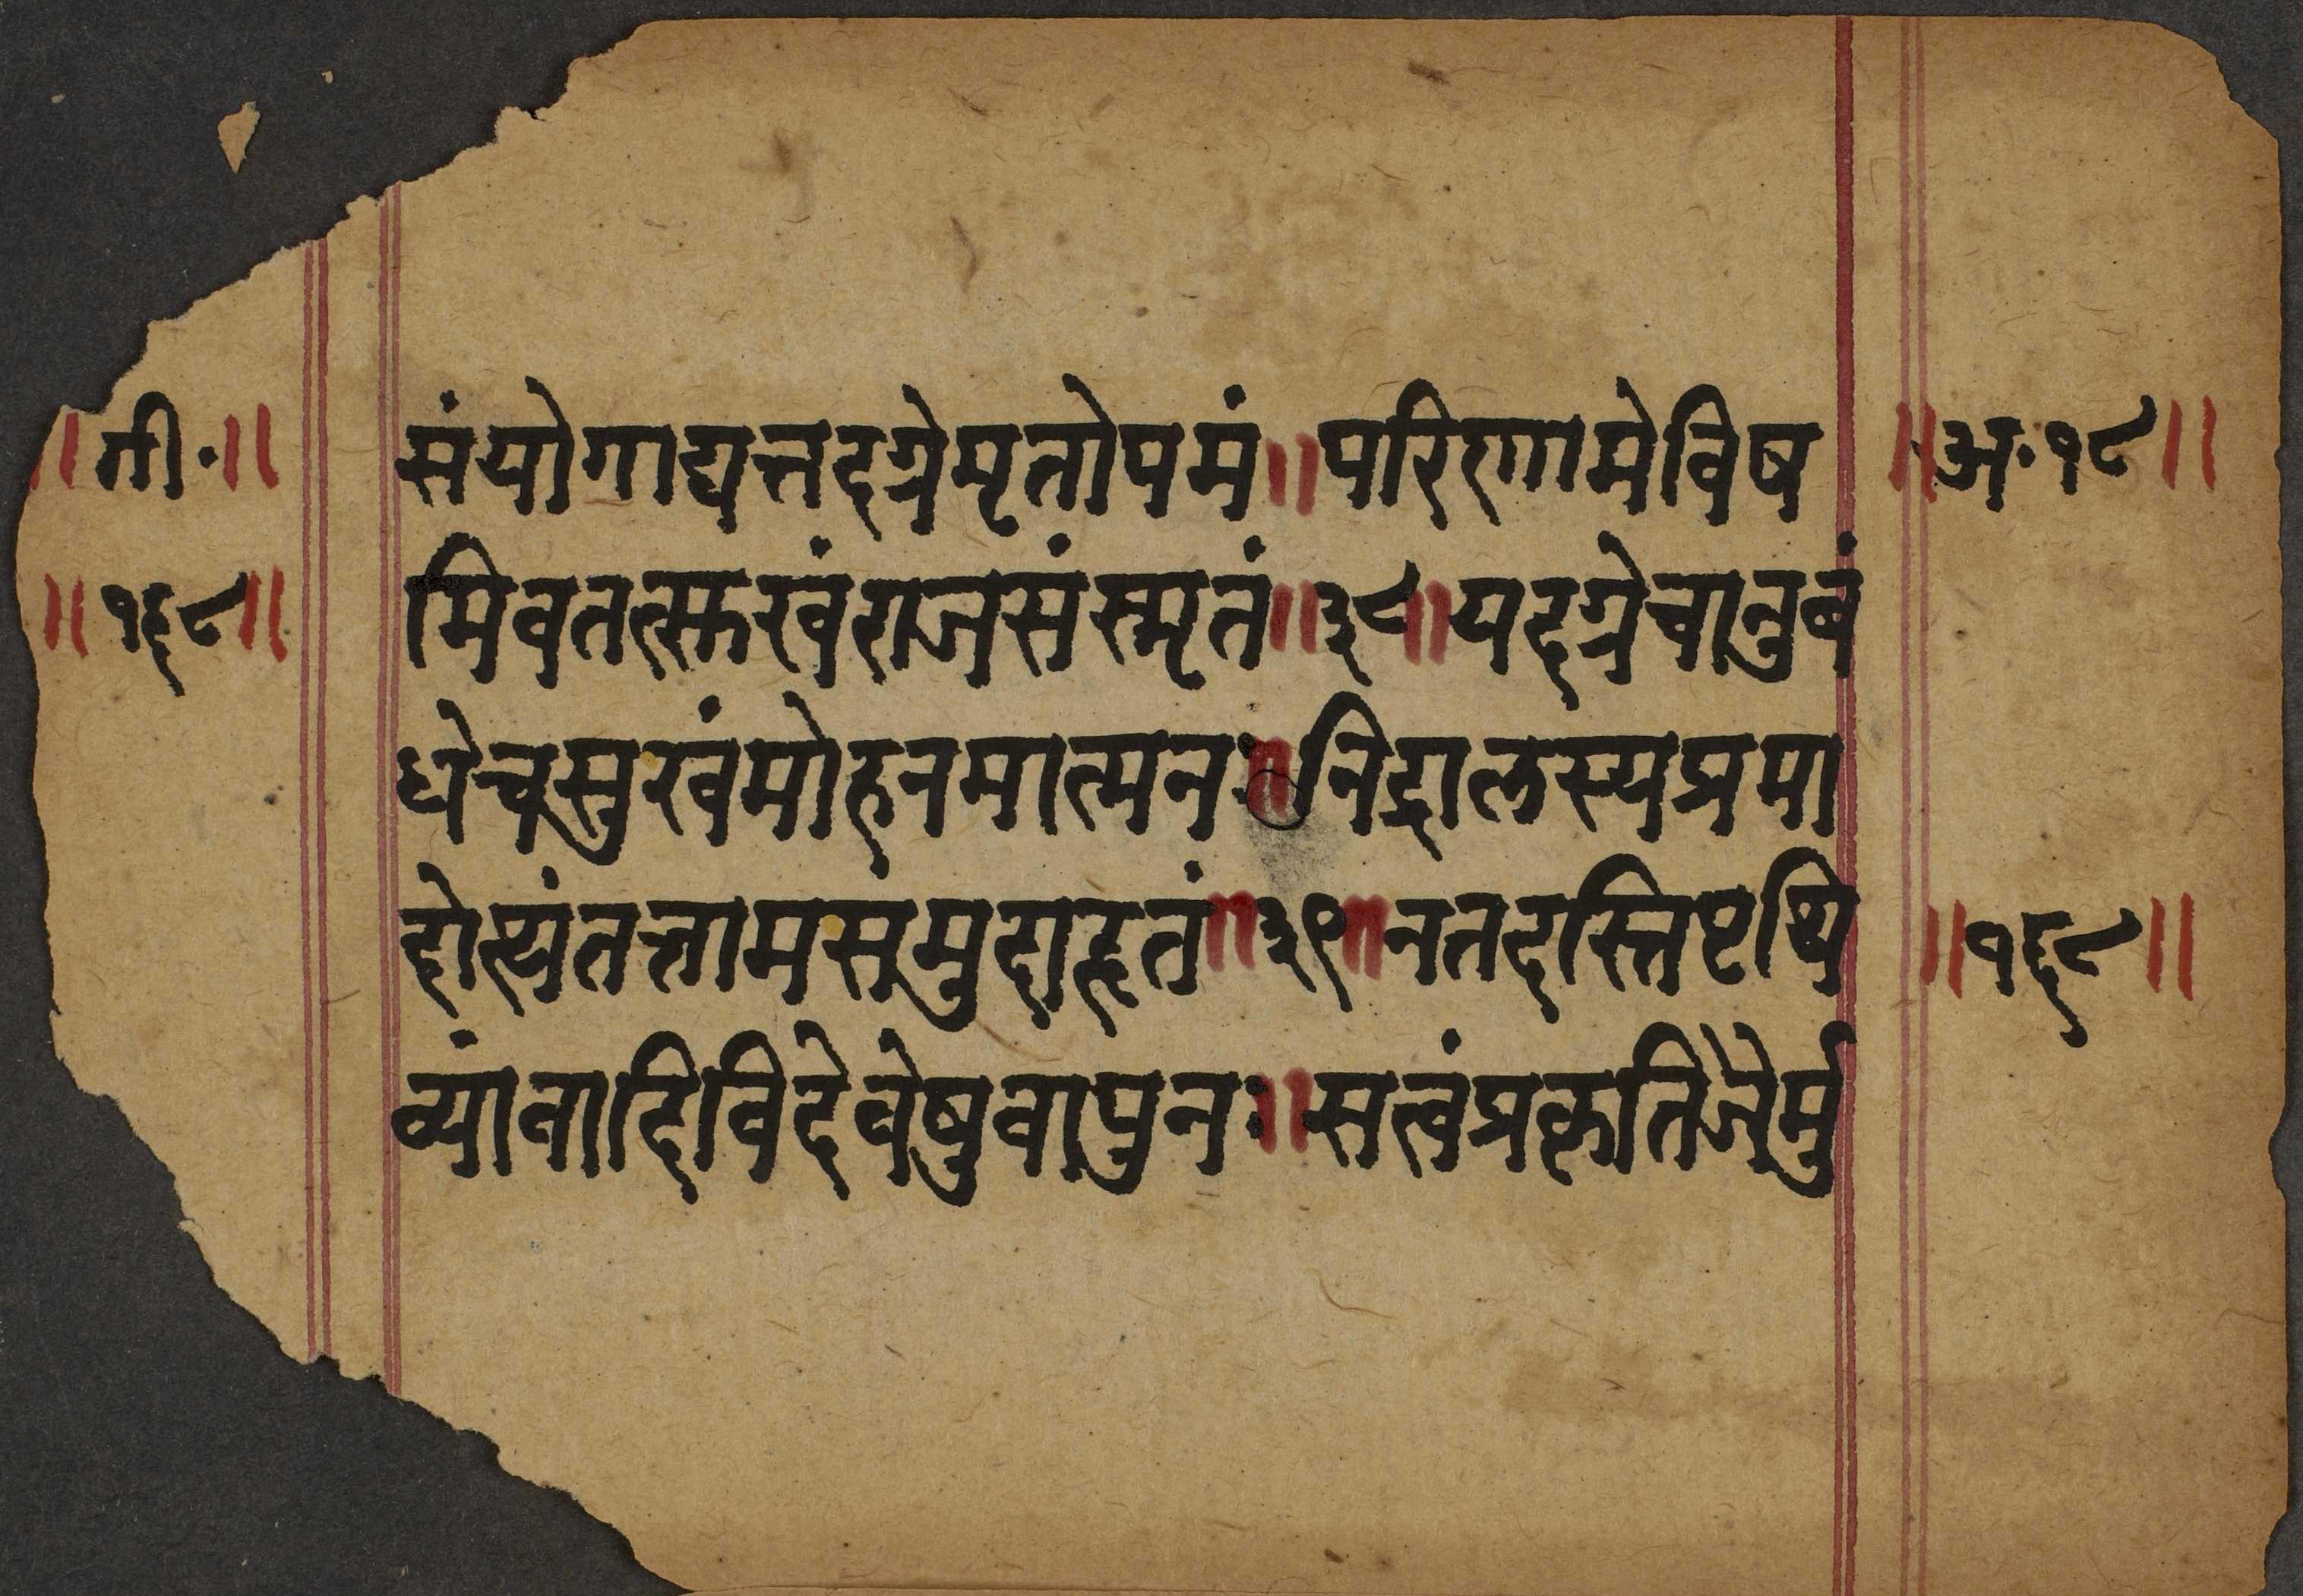 ॥गी॰॥ संयोगाद्यत्तदग्रेमृतोपमं॥परिणामेविष ॥अ॰१८॥
॥१६८॥ मिवतत्सुखंराजसंस्मृतं॥३८॥यदग्रेचानुबं
धेचसुखंमोहनमात्मनः॥निद्रालस्यप्रमा
दोत्थंतत्तामसमुदाहृतं॥३९॥नतदस्तिपृथि ॥१६८॥
व्यांवादिविदेवेषुवापुनः॥सत्वंप्रकृतिजैर्मु